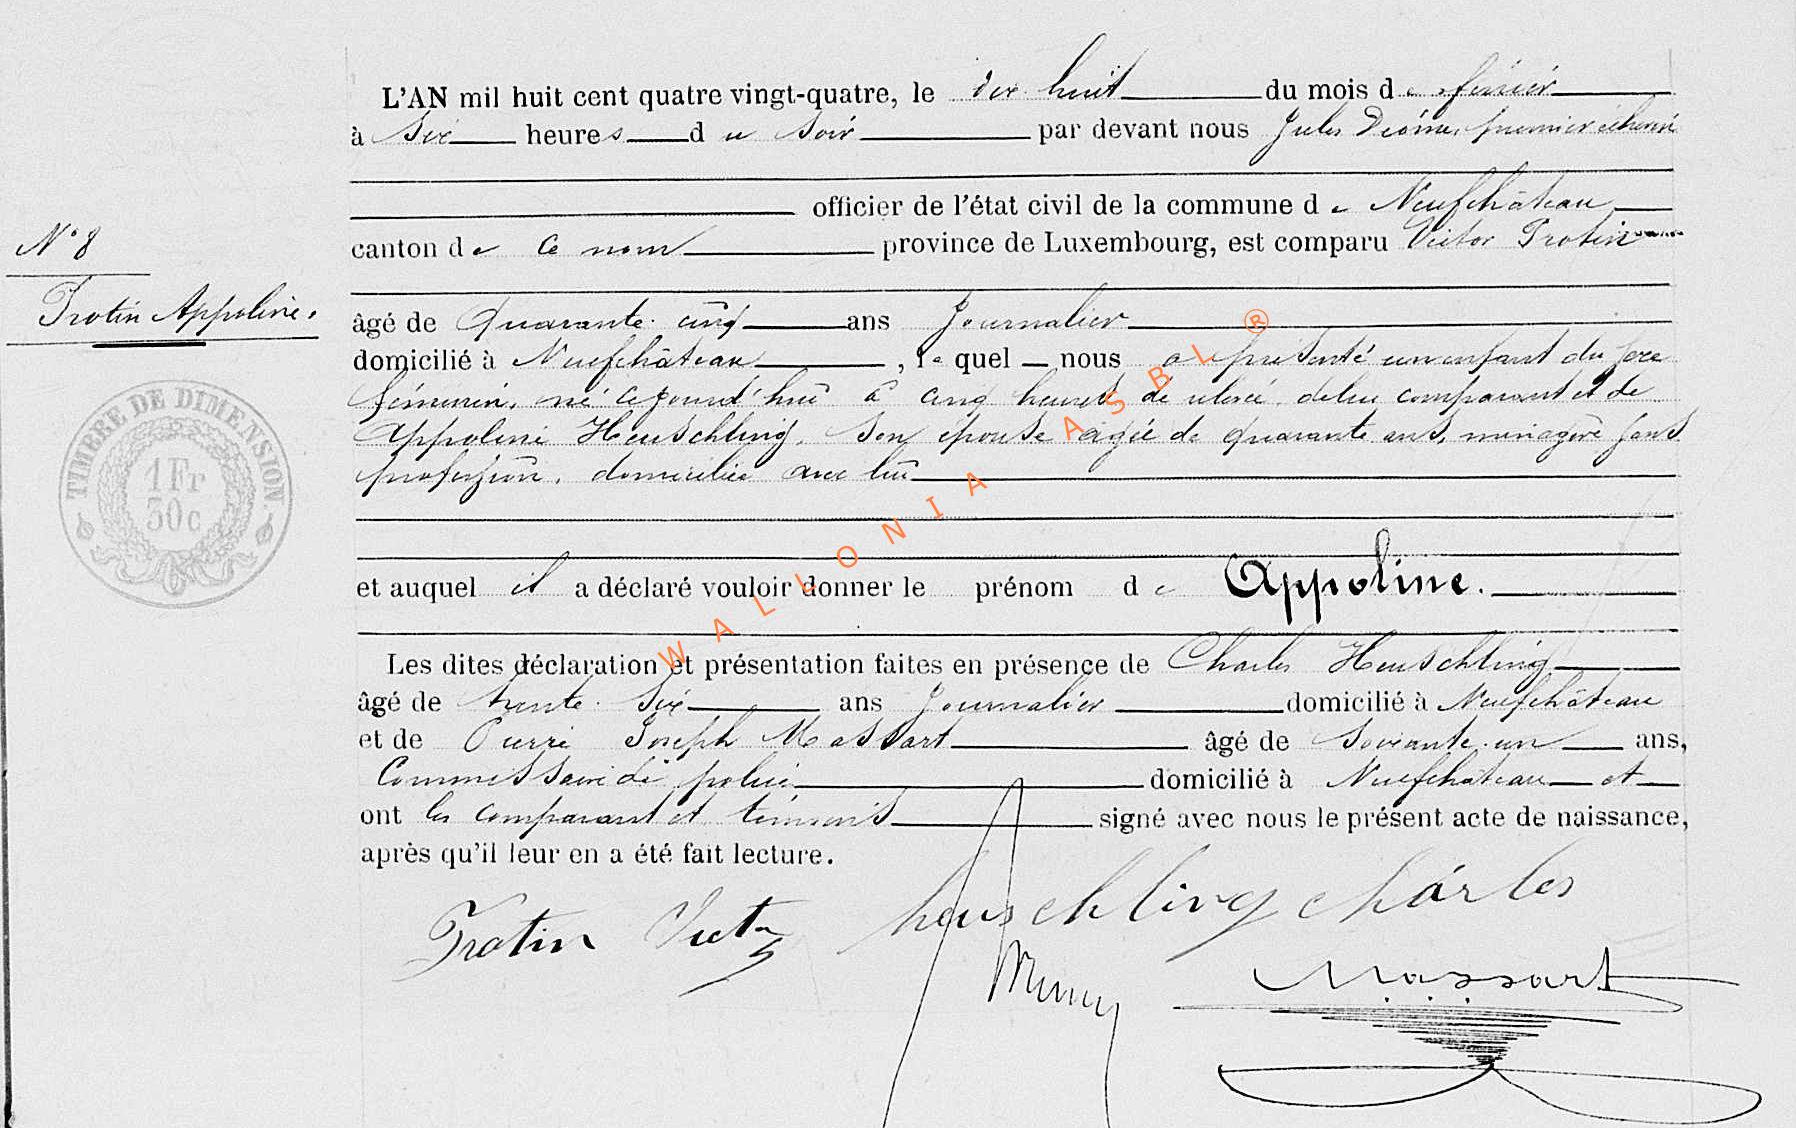 L'AN mil huit cent quatre vingt-quatre, le dix huit du mois de février
à Six heures du Soir par devant nous Jules premier échevin
officier de l'état civil de la commune de Neufchâteau
N° 8
canton de ce nom province de Luxembourg, est comparu Victor Trotin
Trotin Appoline.
âgé de Quarante cinq ans Journalier
domicilié à Neufchâteau, le quel nous a présenté un enfant du sexe
féminin, né ce jourd'hui à cinq heures de relevé de lui comparant et de
Appoline Heuschling, Son épouse agée de quarante ans, ménagère sans
profession, domiciliée avec lui
TIMBRE DE DIMENSION
1 Fr
30 c
et auquel il a déclaré vouloir donner le prénom de Appoline.
Les dites déclaration et présentation faites en présence de Charles Heuschling
âgé de trente Six ans Journalier domicilié à Neufchâteau
et de Pierre Joseph Massart âgé de Soixante un ans,
Commissaire de police domicilié à Neufchâteau et
ont les comparant et témoins signé avec nous le présent acte de naissance,
après qu'il leur en a été fait lecture.
Trotin Victor heuschling charles
Massart
WALLONIA ASBL ®